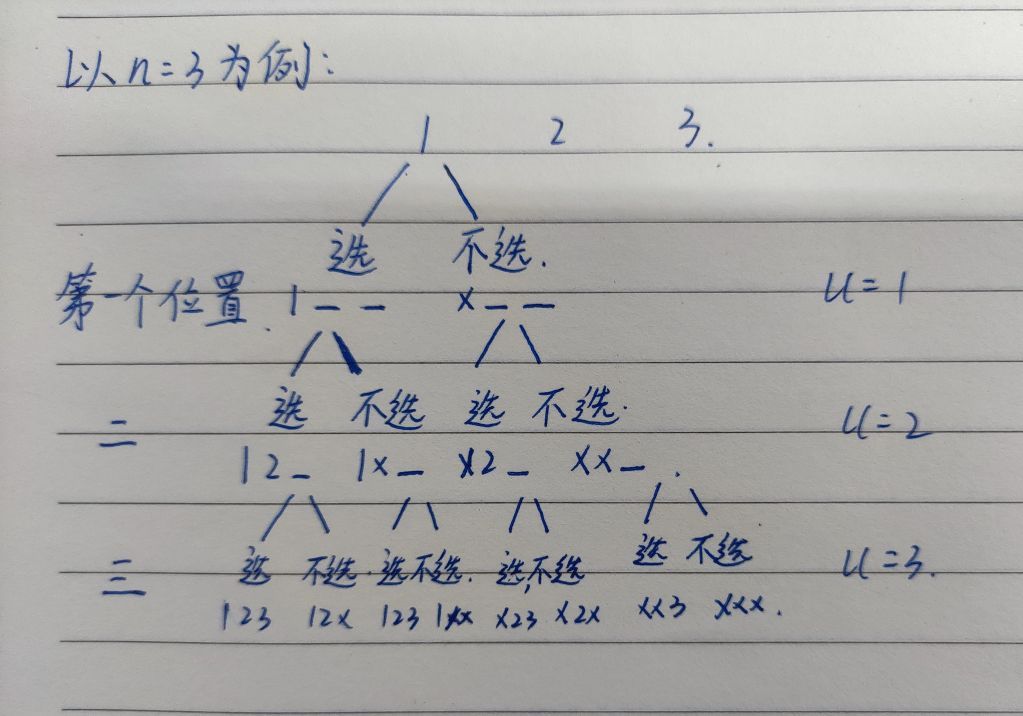 以n=3为例:
1 2 3.
选 不选.
第一个位置. 1 _ _ x _ _ u=1
选 不选 选 不选.
二 u=2
1 2 _ 1 x _ x 2 _ x x _ .
选 不选. 选 不选. 选, 不选 选 不选
三 u=3.
123 12x 123 1xx x23 x2x xx3 xxx.